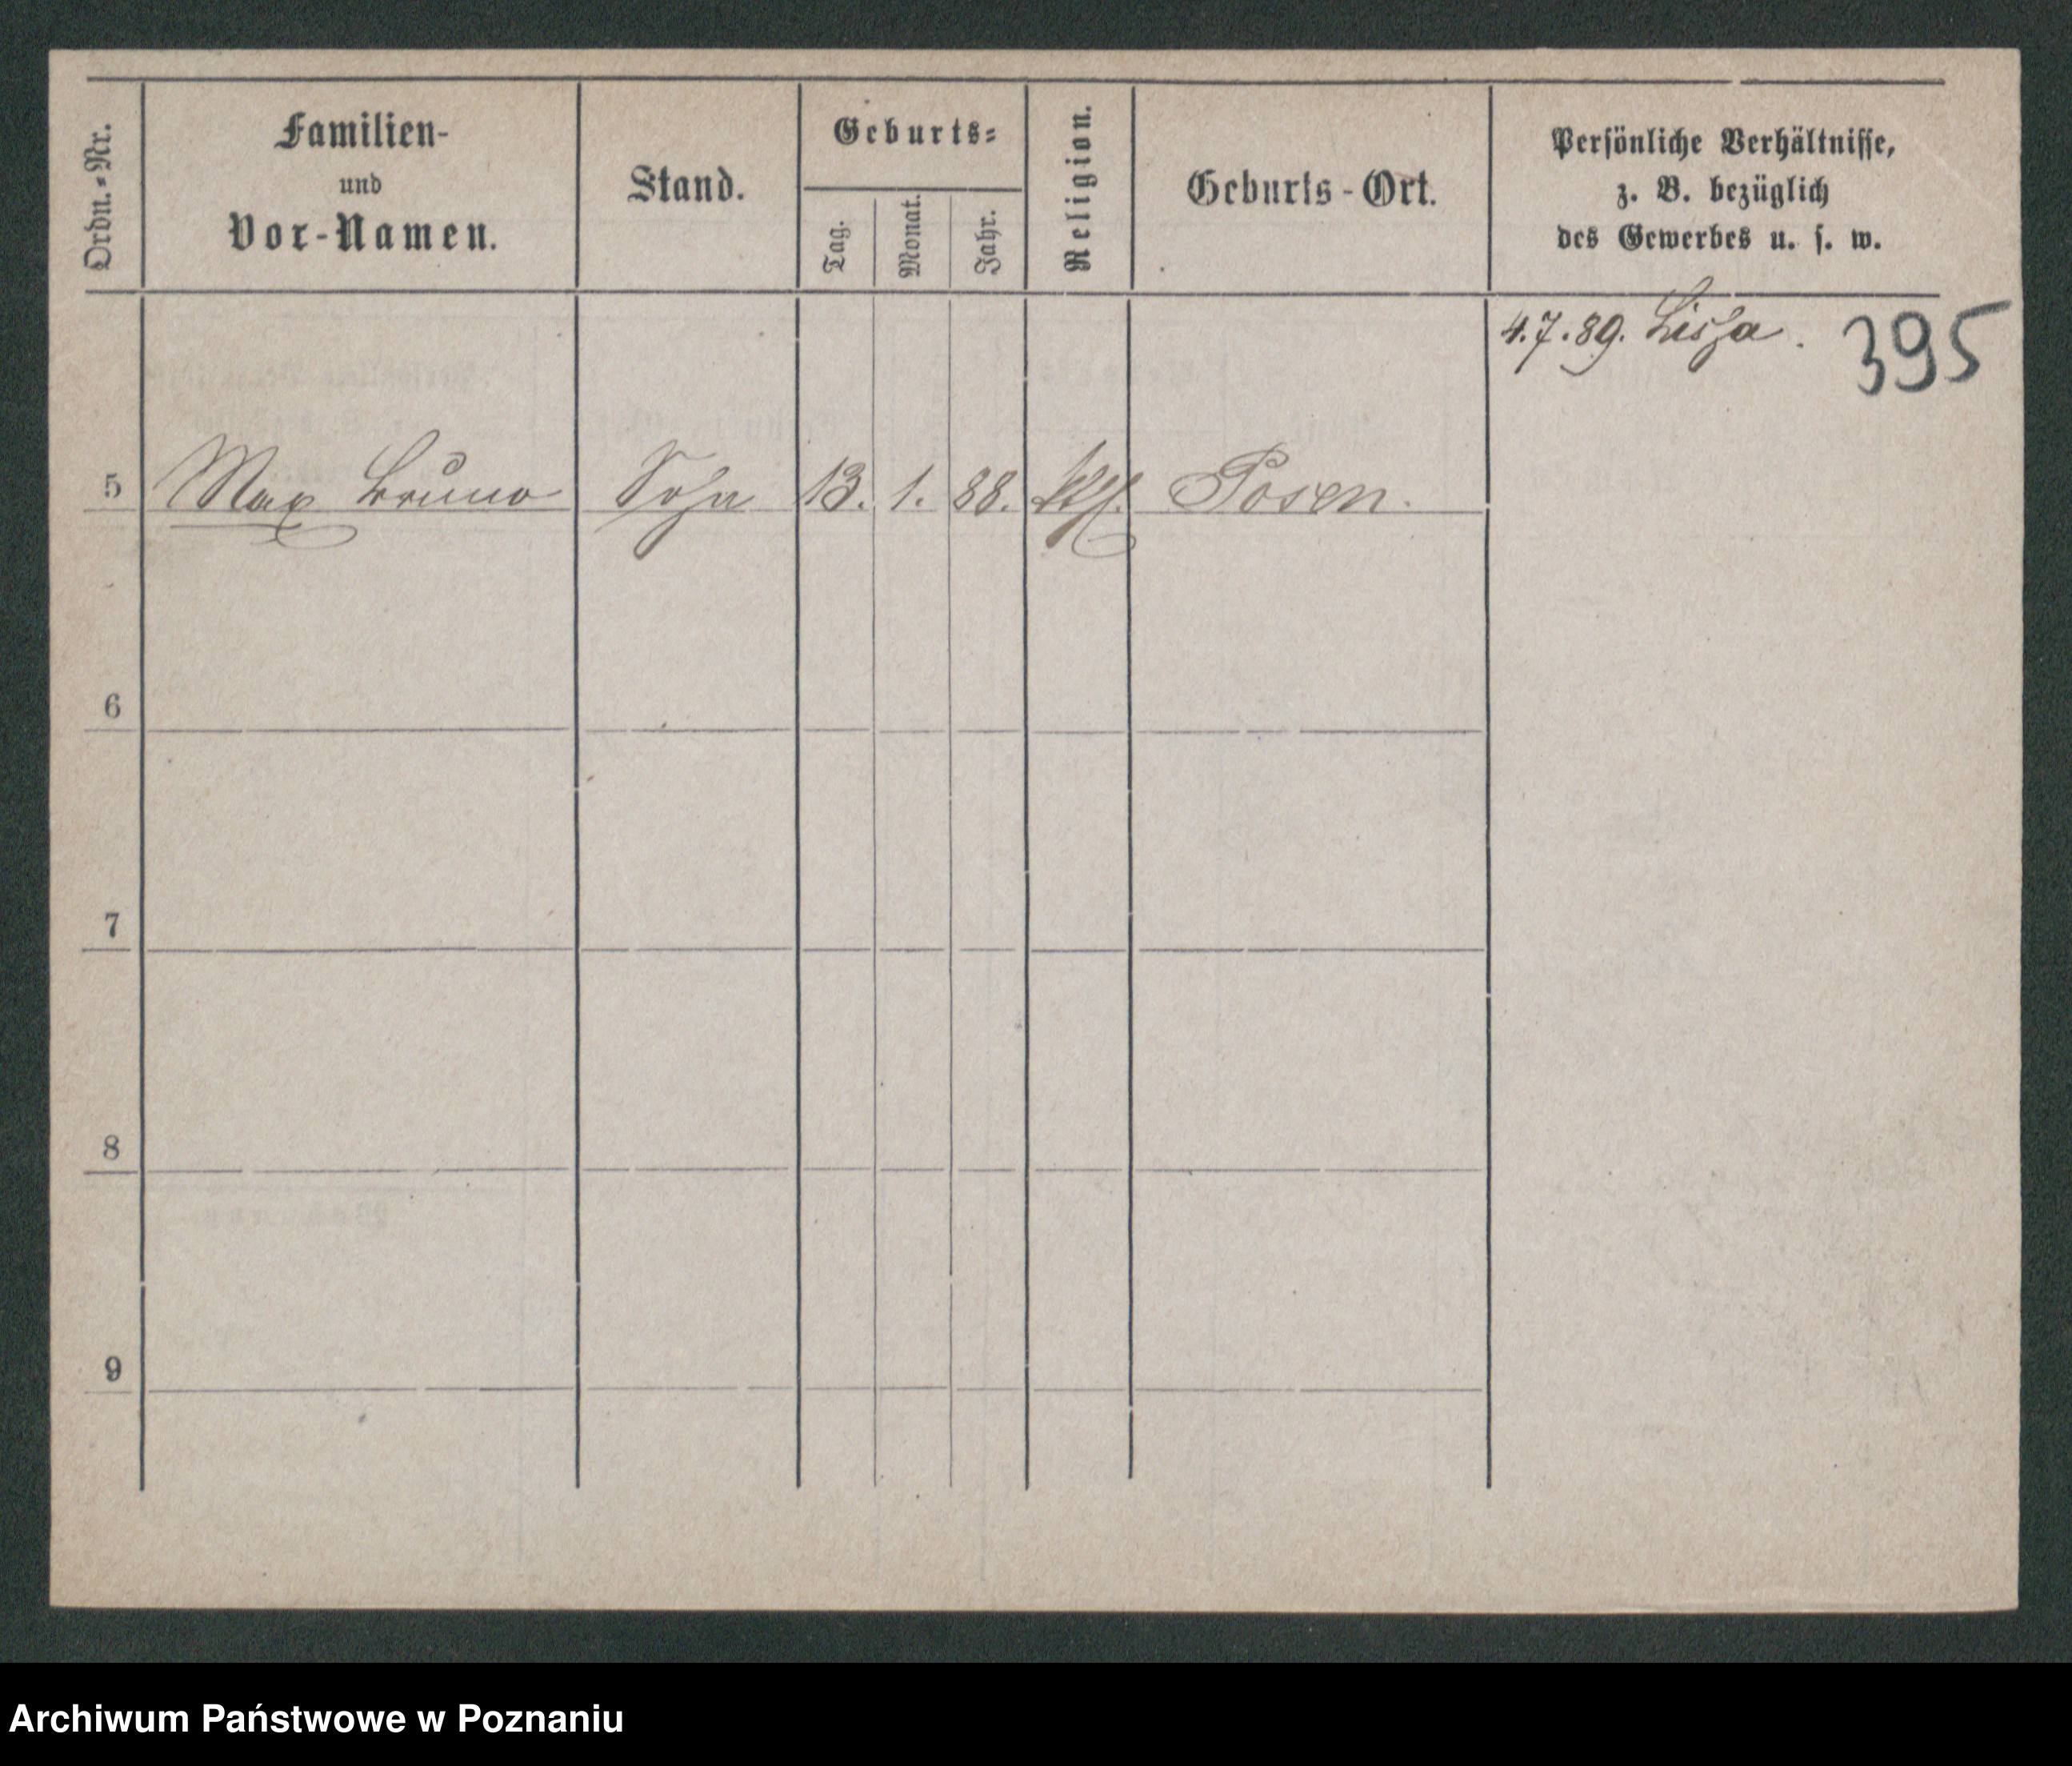 Ordn.-Nr.
Familien-
und
Vor-Namen.
Stand.
Geburts-
Tag.
Monat.
Jahr.
Religion.
Geburts-Ort.
Persönliche Verhältnisse,
z. B. bezüglich
des Gewerbes u. s. w.
4.7.89. Lissa.
395
5 Max Bruno Sohn 13. 1. 88. Posen.
6
7
8
9
Archiwum Państwowe w Poznaniu